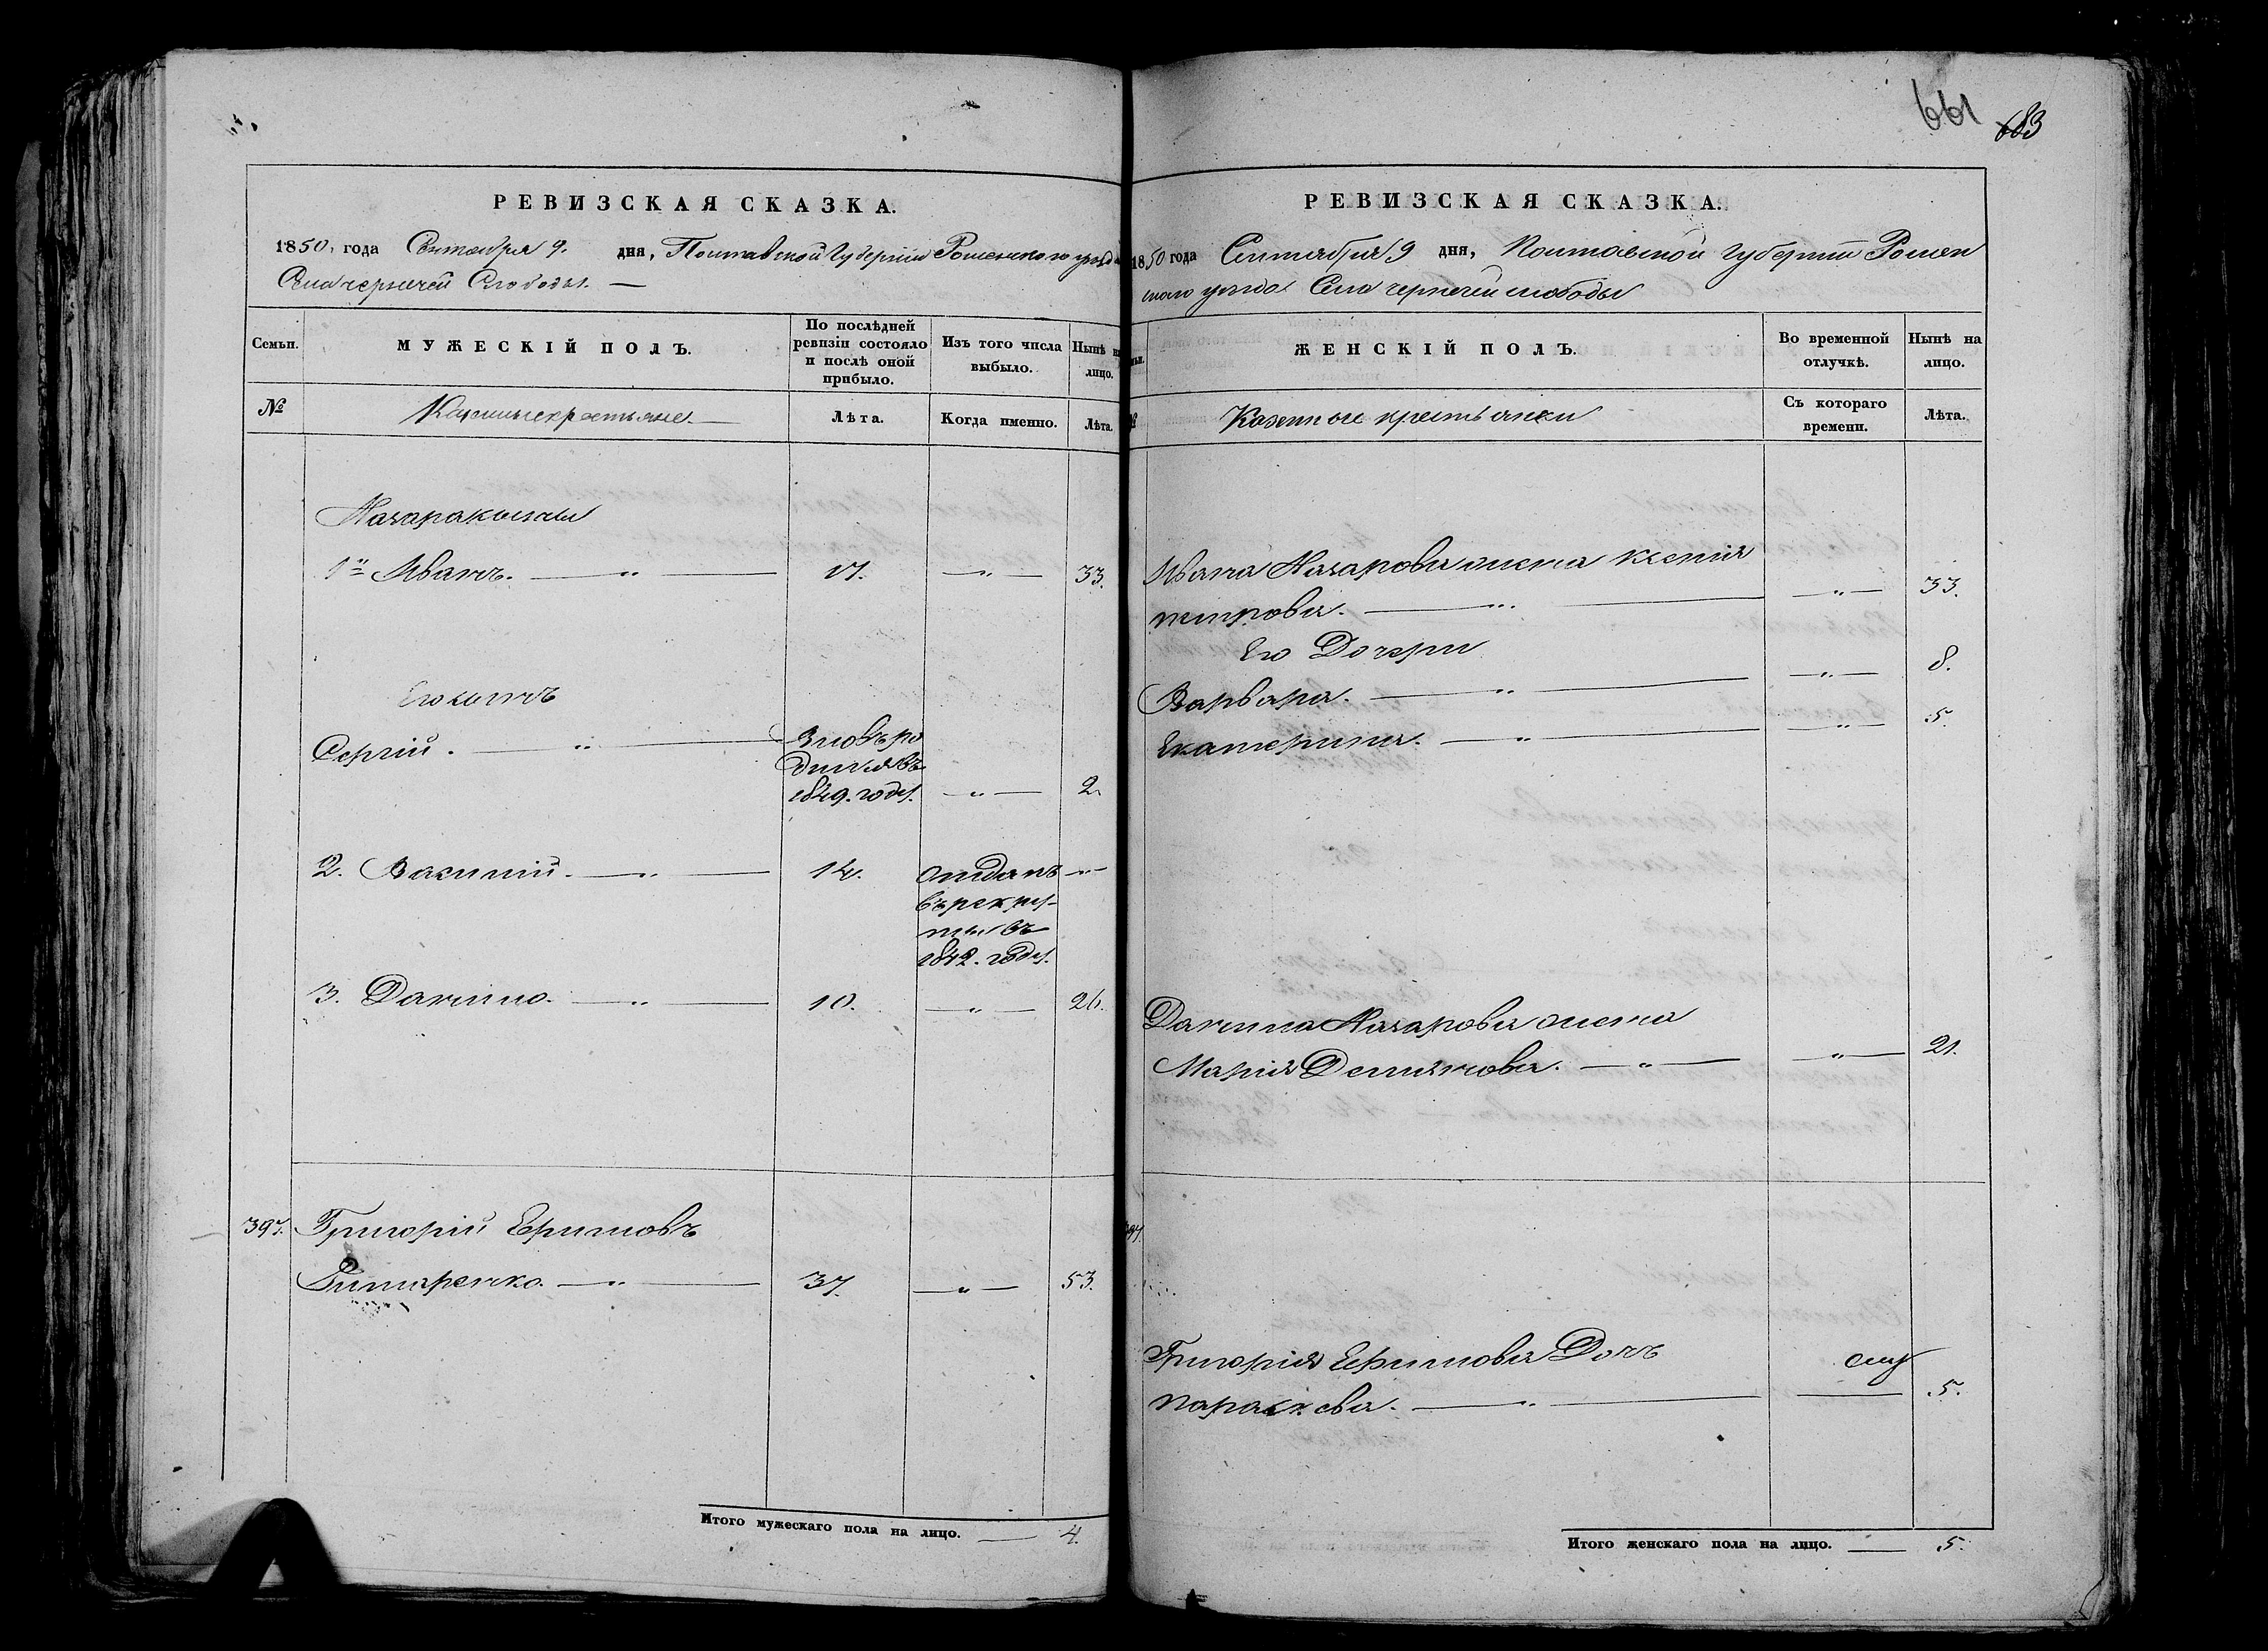 661 683
РЕВИЗСКАЯ СКАЗКА.
1850, года Сентября 9. дня, Полтавской Губерніи Роменского уезда
Села чернечей Слободы.
Семьи.
МУЖЕСКІЙ ПОЛЪ.
По послѣдней ревизіи состояло и послѣ оной прибыло.
Изъ того числа выбыло.
Нынѣ на лицо.
№
Казенные крестьяне.
Лѣта.
Когда именно.
Лѣта.
Назара сыны
1й Иванъ. — „ — 17. — „ — 33.
Его сынъ
Сергій. — „ — Вновь ро
дился въ
1849. году. — „ — 2.
2. Василий. — „ — 14. отданъ — „ —
въ рекру-
ты въ
1842. году.
3. Данило. — „ — 10. — „ — 26.
397. Григорій Ефимовъ
— „ — 37. — „ — 53.
Итого мужескаго пола на лицо. — 4.
РЕВИЗСКАЯ СКАЗКА.
1850 года Сентября 9 дня, Полтавской Губерніи Ромен
ского уезда Села чернечей слободы
ЖЕНСКІЙ ПОЛЪ.
Во временной отлучкѣ.
Нынѣ на лицо.
№
Казенные крестьянки
Съ котораго времени.
Лѣта.
Ивана Назарова жена Ксенія
петрова. — „ — — „ — 33.
Его Дочери
Варвара. — „ — — „ — 8.
Екатерина. — „ — — „ — 5.
Данила Назарова жена
Марія Демянова. — „ — — „ — 21.
397.
Григорія Ефимова Дочь
параскева. — „ — 5.
Итого женскаго пола на лицо. — 5.